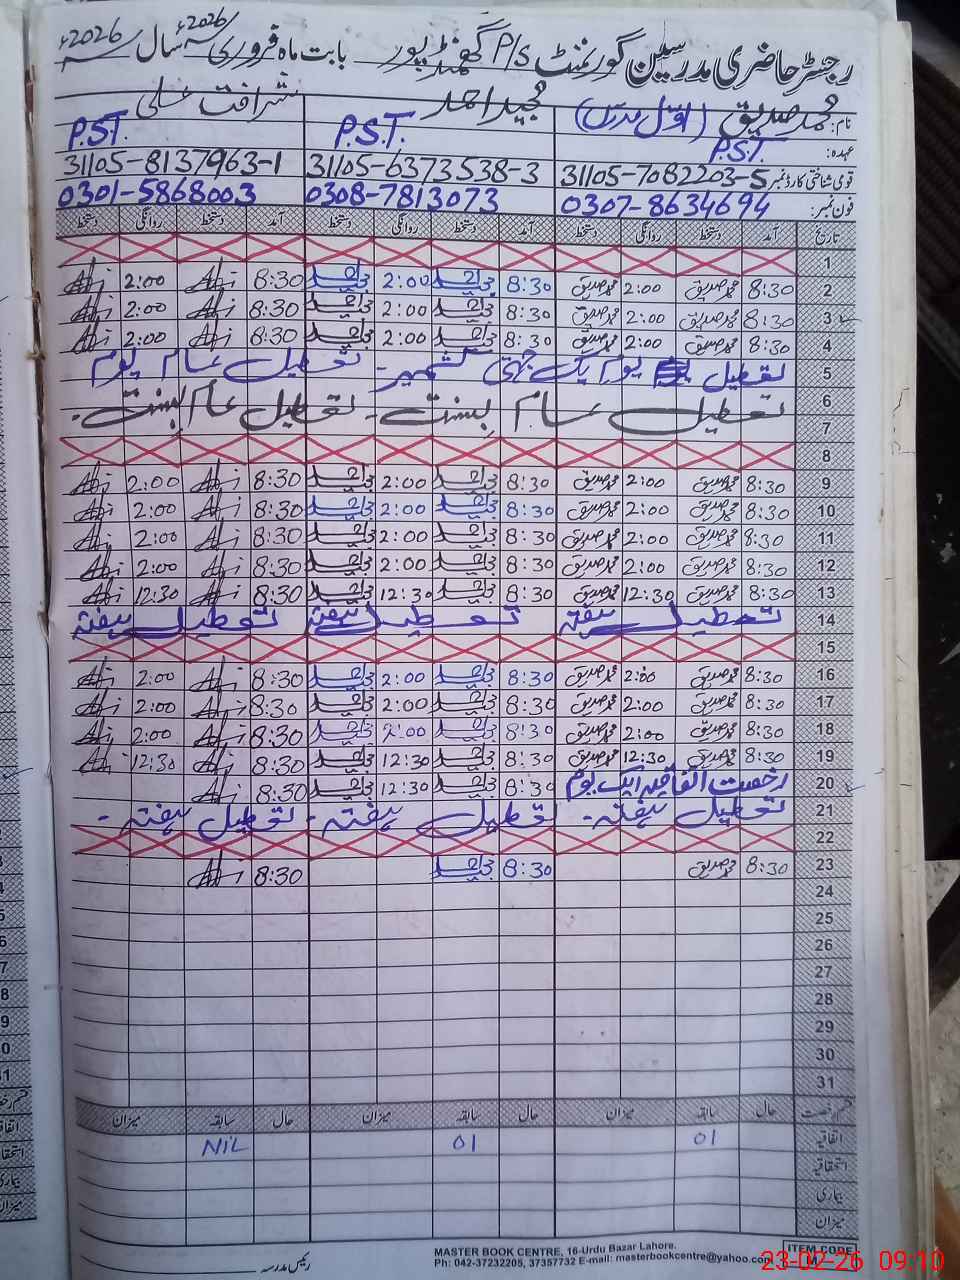 رجسٹر حاضری مدرسین گورنمنٹ P/S گھنڈ پور بابت ماہ فروری 2026ء سال 2026ء
نام: محمد صدیق (اوّل مدرس) مجید احمد شرافت علی
عہدہ: P.S.T. P.S.T. P.S.T.
قومی شناختی کارڈ نمبر 31105-7082203-5 31105-6373538-3 31105-8137963-1
فون نمبر: 0307-8634694 0308-7813073 0301-5868003
تاریخ آمد دستخط روانگی دستخط آمد دستخط روانگی دستخط آمد دستخط روانگی دستخط
1
2 8:30 محمد صدیق 2:00 محمد صدیق 8:30 2:00 8:30 2:00
3 8:30 محمد صدیق 2:00 محمد صدیق 8:30 2:00 8:30 2:00
4 8:30 محمد صدیق 2:00 محمد صدیق 8:30 2:00 8:30 2:00
5 تعطیل یوم یک جہتی کشمیر - تعطیل عام یوم
6 تعطیل عام بسنت - تعطیل عام بسنت -
7
8
9 8:30 محمد صدیق 2:00 محمد صدیق 8:30 2:00 8:30 2:00
10 8:30 محمد صدیق 2:00 محمد صدیق 8:30 2:00 8:30 2:00
11 8:30 محمد صدیق 2:00 محمد صدیق 8:30 2:00 8:30 2:00
12 8:30 محمد صدیق 2:00 محمد صدیق 8:30 2:00 8:30 2:00
13 8:30 محمد صدیق 12:30 محمد صدیق 8:30 12:30 8:30 12:30
14 تعطیل ہفتہ تعطیل ہفتہ تعطیل ہفتہ
15
16 8:30 محمد صدیق 2:00 محمد صدیق 8:30 2:00 8:30 2:00
17 8:30 محمد صدیق 2:00 محمد صدیق 8:30 2:00 8:30 2:00
18 8:30 محمد صدیق 2:00 محمد صدیق 8:30 2:00 8:30 2:00
19 8:30 محمد صدیق 12:30 محمد صدیق 8:30 12:30 8:30 12:30
20 رخصت اتفاقیہ ایک یوم 8:30 12:30 8:30
21 تعطیل ہفتہ - تعطیل ہفتہ - تعطیل ہفتہ -
22
23 8:30 محمد صدیق 8:30 8:30
24
25
26
27
28
29
30
31
قسم رخصت حال سابقہ میزان حال سابقہ میزان حال سابقہ میزان
اتفاقیہ 01 01 NiL
استحقاقیہ
بیماری
میزان
رئیس مدرسہ
MASTER BOOK CENTRE, 16-Urdu Bazar Lahore.
Ph: 042-37232205, 37357732 E-mail: masterbookcentre@yahoo.com
ITEM CODE
23-02-26 09:10